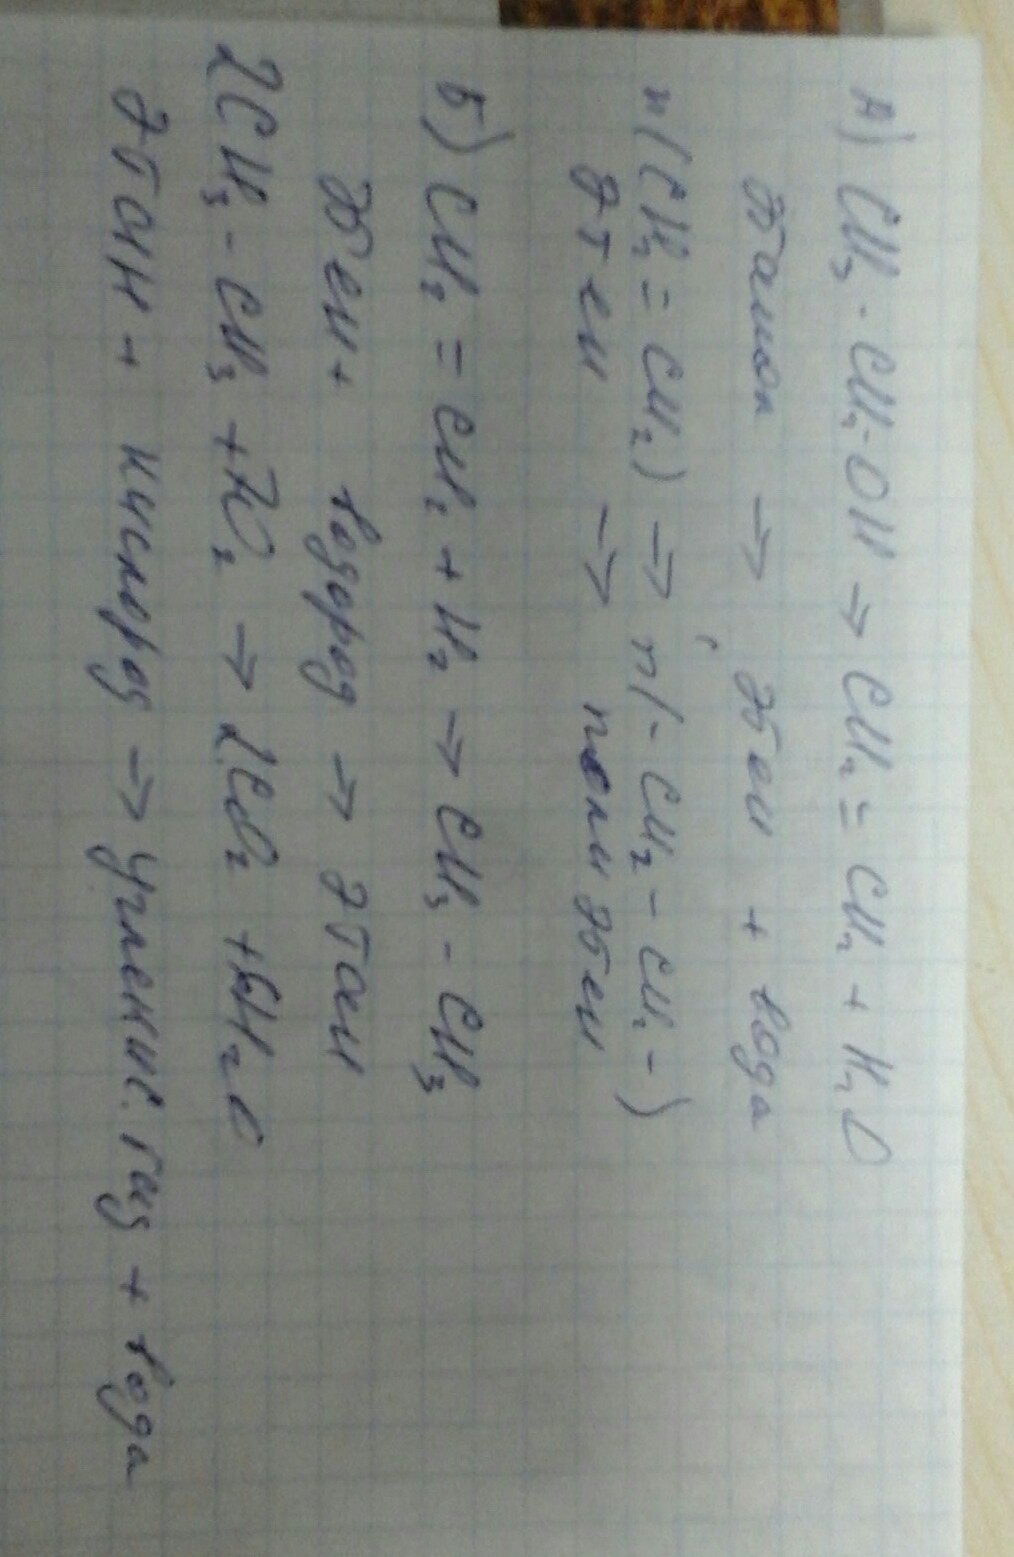 А) CH₃-CH₂-OH → CH₂=CH₂ + H₂O
Этанол → Этен + вода
n(CH₂=CH₂) → n(-CH₂-CH₂-)
Этен → полиэтен
Б) CH₂=CH₂+H₂ → CH₃-CH₃
Этен+ водород → этан
2CH₃-CH₃+7O₂ → 2CO₂ +6H₂O
Этан+ кислород → углекис. газ + вода